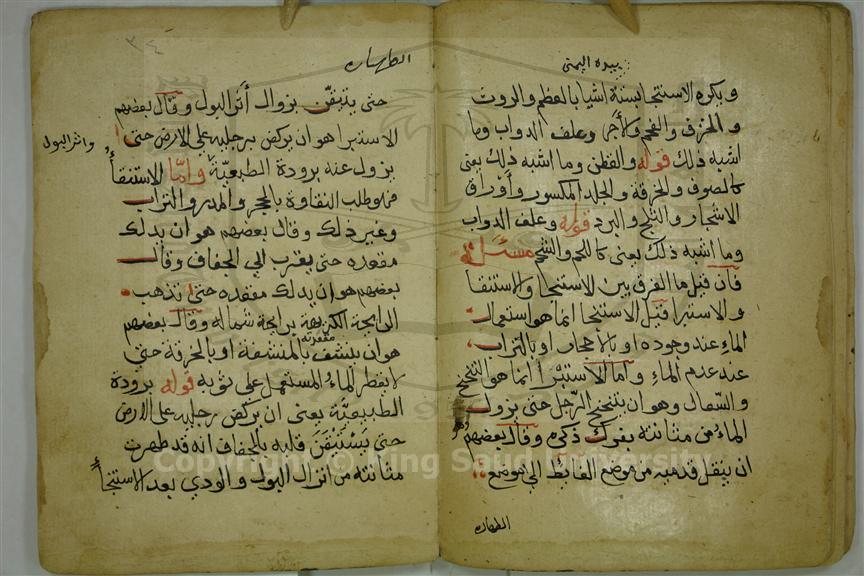 بيده اليمنى
ويكره الاستنجا بستة اشيا بالعظم والروث
والخزف والفحم والآجر وعلف الدواب وما
اشبه ذلك قوله والقطن وما اشبه ذلك يعنى
كالصوف والخرقة والجلد المكسور وأوراق
الاشجار والثلج والبرد قوله وعلف الدواب
وما اشبه ذلك يعنى كاللحم والشحم مسئلة
فان قيل ما الفرق بين الاستنجا والاستنقا
والاستبرا قيل الاستنجا انما هو استعمال
الماء عند وجوده او بالاحجار او بالتراب
عند عدم الماء واما الاستبرا انما هو التنحنح
والسعال وهو ان يتنحنح الرجل حتى يزول
الماء من مثانته بفرك ذكره وقال بعضهم هو
ان ينقل قدميه من موضع الغائط الى موضع
الطهارة
٣٤
الطهارة
حتى يتيقن بزوال أثر البول وقال بعضهم
الاستبرا هو ان يركض برجليه على الارض حتى
واثر البول
يزول عنه برودة الطبيعية واما الاستنقأ
فهو طلب النقاوة بالحجر والمدر والتراب
وغير ذلك وقال بعضهم هو ان يدلك
مقعده حتى يقرب الى الجفاف وقال
بعضهم هو ان يدلك مقعده حتى تذهب
الرايحة الكريهة برايحة شماله وقال بعضهم
مقعدته
هو ان ينشف بالمنشفة او بالخرقة حتى
لا يقطر الماء المستعمل على ثوبه قوله برودة
الطبيعية يعنى ان يركض رجليه على الارض
حتى يستيقن قلبه بالجفاف انه قد طهرت
مثانته من انزال البول والودي بعد الاستنجأ
Copyright © King Saud University